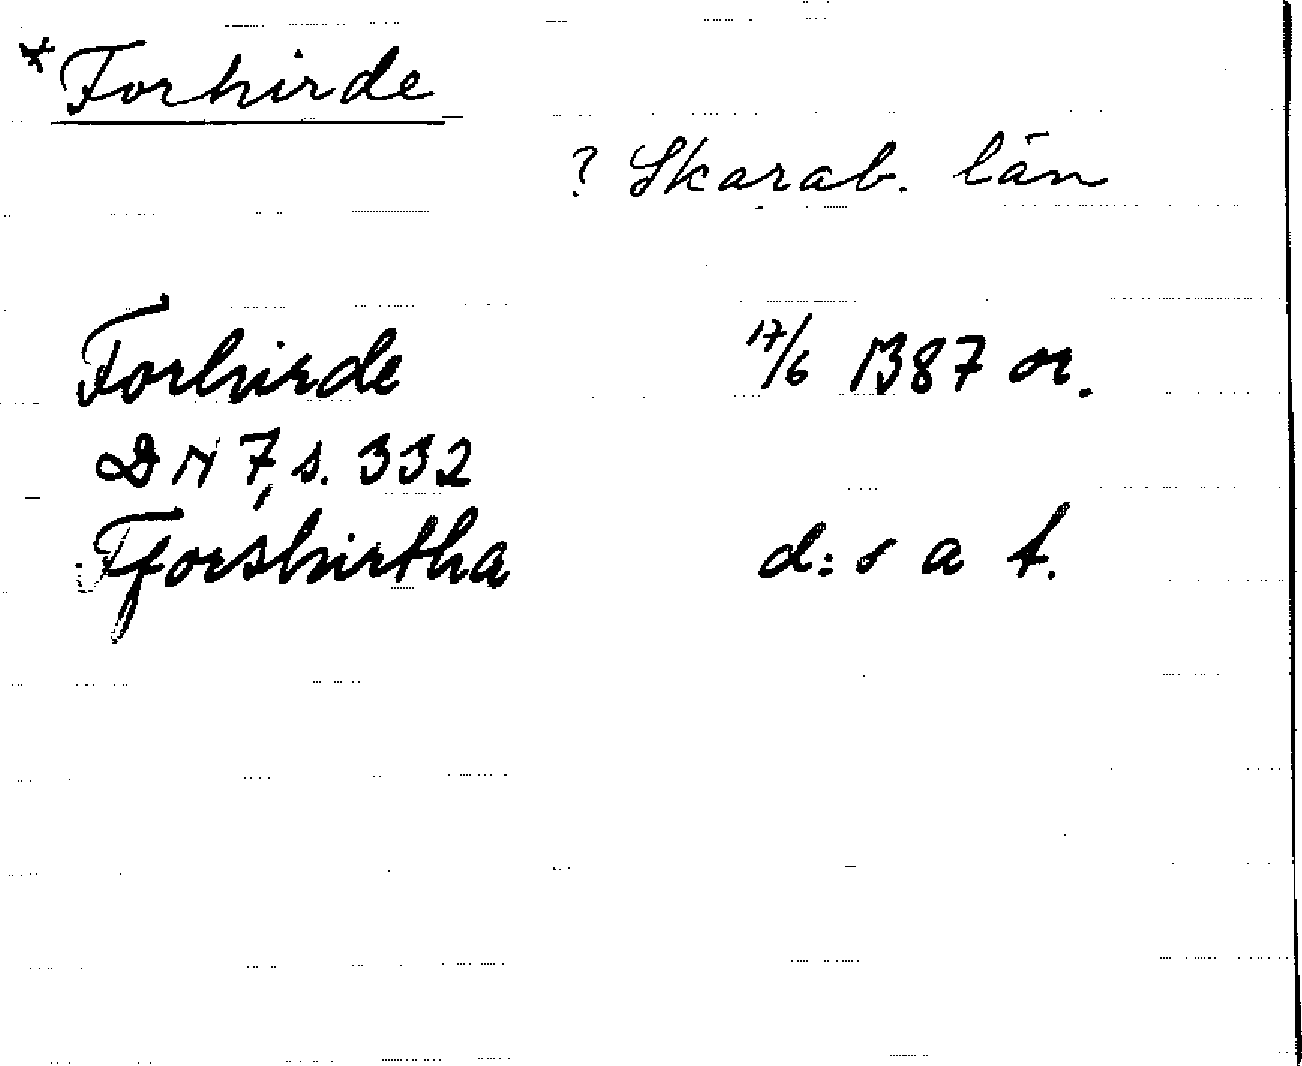 * Forhirde
? Skarab. län
Forhirde 17/6 1387 or.
DN 7, s. 332
Fforshirtha d:s a t.